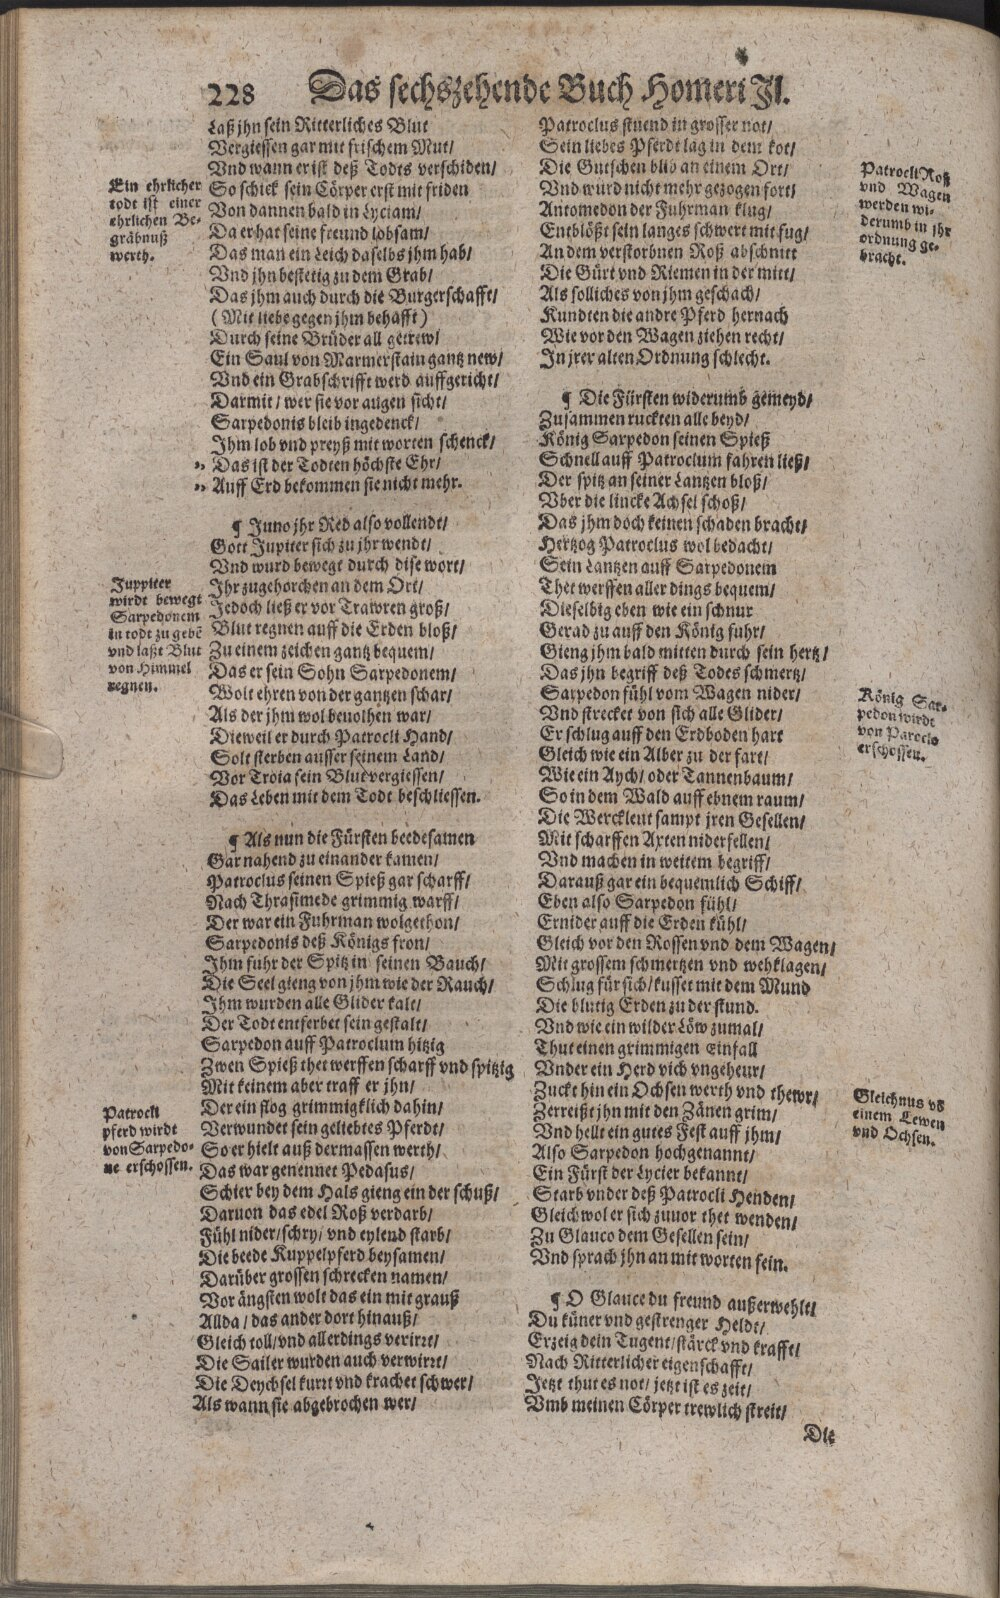 228 Das sechszehende Buch Homeri Jl.
Laß jhn sein Ritterliches Blut
Vergiessen gar mit frischem Mut/
Vnd wann er ist deß Todts verschiden/
So schick sein Cörper erst mit friden
Von dannen bald in Lyciam/
Da er hat seine freund lobsam/
Das man ein Leich daselbs jhm hab/
Vnd jhn bestetig zu dem Grab/
Das jhm auch durch die Burgerschafft/
(Mit liebe gegen jhm behafft)
Durch seine Brüder all getrew/
Ein Saul von Marmerstain gantz new/
Vnd ein Grabschrifft werd auffgericht/
Darmit/ wer sie vor augen sicht/
Sarpedonis bleib ingedenck/
Ihm lob vnd preyß mit worten schenck/
» Das ist der Todten höchste Ehr/
» Auff Erd bekommen sie nicht mehr.
Ein ehrlicher
todt ist einer
ehrlichen Be-
gräbnuß
werth.
¶ Juno jhr Red also vollendt/
Gott Jupiter sich zu jhr wendt/
Vnd wurd bewegt durch dise wort/
Ihr zugehorchen an dem Ort/
Jedoch ließ er vor Trawren groß/
Blut regnen auff die Erden bloß/
Zu einem zeichen gantz bequem/
Das er sein Sohn Sarpedonem/
Wolt ehren von der gantzen schar/
Als der jhm wol beuolhen war/
Dieweil er durch Patrocli Hand/
Solt sterben ausser seinem Land/
Vor Troia sein Blut vergiessen/
Das Leben mit dem Todt beschliessen.
Juppiter
wirdt bewegt
Sarpedonem
in todt zu gebē
vnd laßt Blut
von Himmel
regnen.
¶ Als nun die Fürsten beedesamen
Gar nahend zu einander kamen/
Patroclus seinen Spieß gar scharff/
Nach Thrasimede grimmig warff/
Der war ein Fuhrman wolgethon/
Sarpedonis deß Königs fron/
Ihm fuhr der Spitz in seinen Bauch/
Die Seel gieng von jhm wie der Rauch/
Ihm wurden alle Glider kalt/
Der Todt entferbet sein gestalt/
Sarpedon auff Patroclum hitzig
Zwen Spieß thet werffen scharff vnd spitzig
Mit keinem aber traff er jhn/
Der ein flog grimmigklich dahin/
Verwundet sein geliebtes Pferdt/
So er hielt auß dermassen werth/
Das war genennet Pedasus/
Schier bey dem Hals gieng ein der schuß/
Daruon das edel Roß verdarb/
Fühl nider/ schry/ vnd eylend starb/
Die beede Kuppelpferd beysamen/
Darüber grossen schrecken namen/
Vor ängsten wolt das ein mit grauß
Allda/ das ander dort hinauß/
Gleich toll/ vnd allerdings verirrt/
Die Sailer wurden auch verwirrt/
Die Deychsel kurrt vnd krachet schwer/
Als wann sie abgebrochen wer/
Patrocli
pferd wirdt
von Sarpedo-
ne erschossen.
Patroclus stuend in grosser not/
Sein liebes Pferdt lag in dem kot/
Die Gutschen blib an einem Ort/
Vnd wurd nicht mehr gezogen fort/
Antomedon der Fuhrman klug/
Entblößt sein langes schwert mit fug/
An dem verstorbnen Roß abschnitt
Die Gürt vnd Riemen in der mitt/
Als solliches von jhm geschach/
Kundten die andre Pferd hernach
Wie vor den Wagen ziehen recht/
In jrer alten Ordnung schlecht.
Patrocli Roß
vnd Wagen
werden wi-
derumb in jhr
ordnung ge-
bracht.
¶ Die Fürsten widerumb gemeyd/
Zusammen ruckten alle beyd/
König Sarpedon seinen Spieß
Schnell auff Patroclum fahren ließ/
Der spitz an seiner Lantzen bloß/
Vber die lincke Achsel schoß/
Das jhm doch keinen schaden bracht/
Hertzog Patroclus wol bedacht/
Sein Lantzen auff Sarpedonem
Thet werffen aller dings bequem/
Dieselbig eben wie ein schnur
Gerad zu auff den König fuhr/
Gieng jhm bald mitten durch sein hertz/
Das jhn begriff deß Todes schmertz/
Sarpedon fühl vom Wagen nider/
Vnd strecket von sich alle Glider/
Er schlug auff den Erdboden hart
Gleich wie ein Alber zu der fart/
Wie ein Aych/ oder Tannenbaum/
So in dem Wald auff ebnem raum/
Die Werckleut sampt jren Gesellen/
Mit scharffen Axten niderfellen/
Vnd machen in weitem begriff/
Darauß gar ein bequemlich Schiff/
Eben also Sarpedon fühl/
Ernider auff die Erden kühl/
Gleich vor den Rossen vnd dem Wagen/
Mit grossem schmertzen vnd wehklagen/
Schlug für sich/ kusset mit dem Mund
Die blutig Erden zu der stund.
Vnd wie ein wilder Löw zumal/
Thut einen grimmigen Einfall
Vnder ein Herd vich vngeheur/
Zuckt hin ein Ochsen werth vnd thewr/
Zerreißt jhn mit den Zänen grim/
Vnd hellt ein gutes Fest auff jhm/
Also Sarpedon hochgenannt/
Ein Fürst der Lycier bekannt/
Starb vnder deß Patrocli Henden/
Gleichwol er sich zuuor thet wenden/
Zu Glauco dem Gesellen sein/
Vnd sprach jhn an mit worten fein.
König Sar-
pedon wirdt
von Paroclo
erschossen.
Gleichnus vō
einem Lewen
vnd Ochsen.
¶ O Glauce du freund außerwehlt/
Du küner vnd gestrenger Heldt/
Erzeig dein Tugent/ stärck vnd krafft/
Nach Ritterlicher eigenschafft/
Jetzt thut es not/ jetzt ist es zeit/
Vmb meinen Cörper trewlich streit/
Die